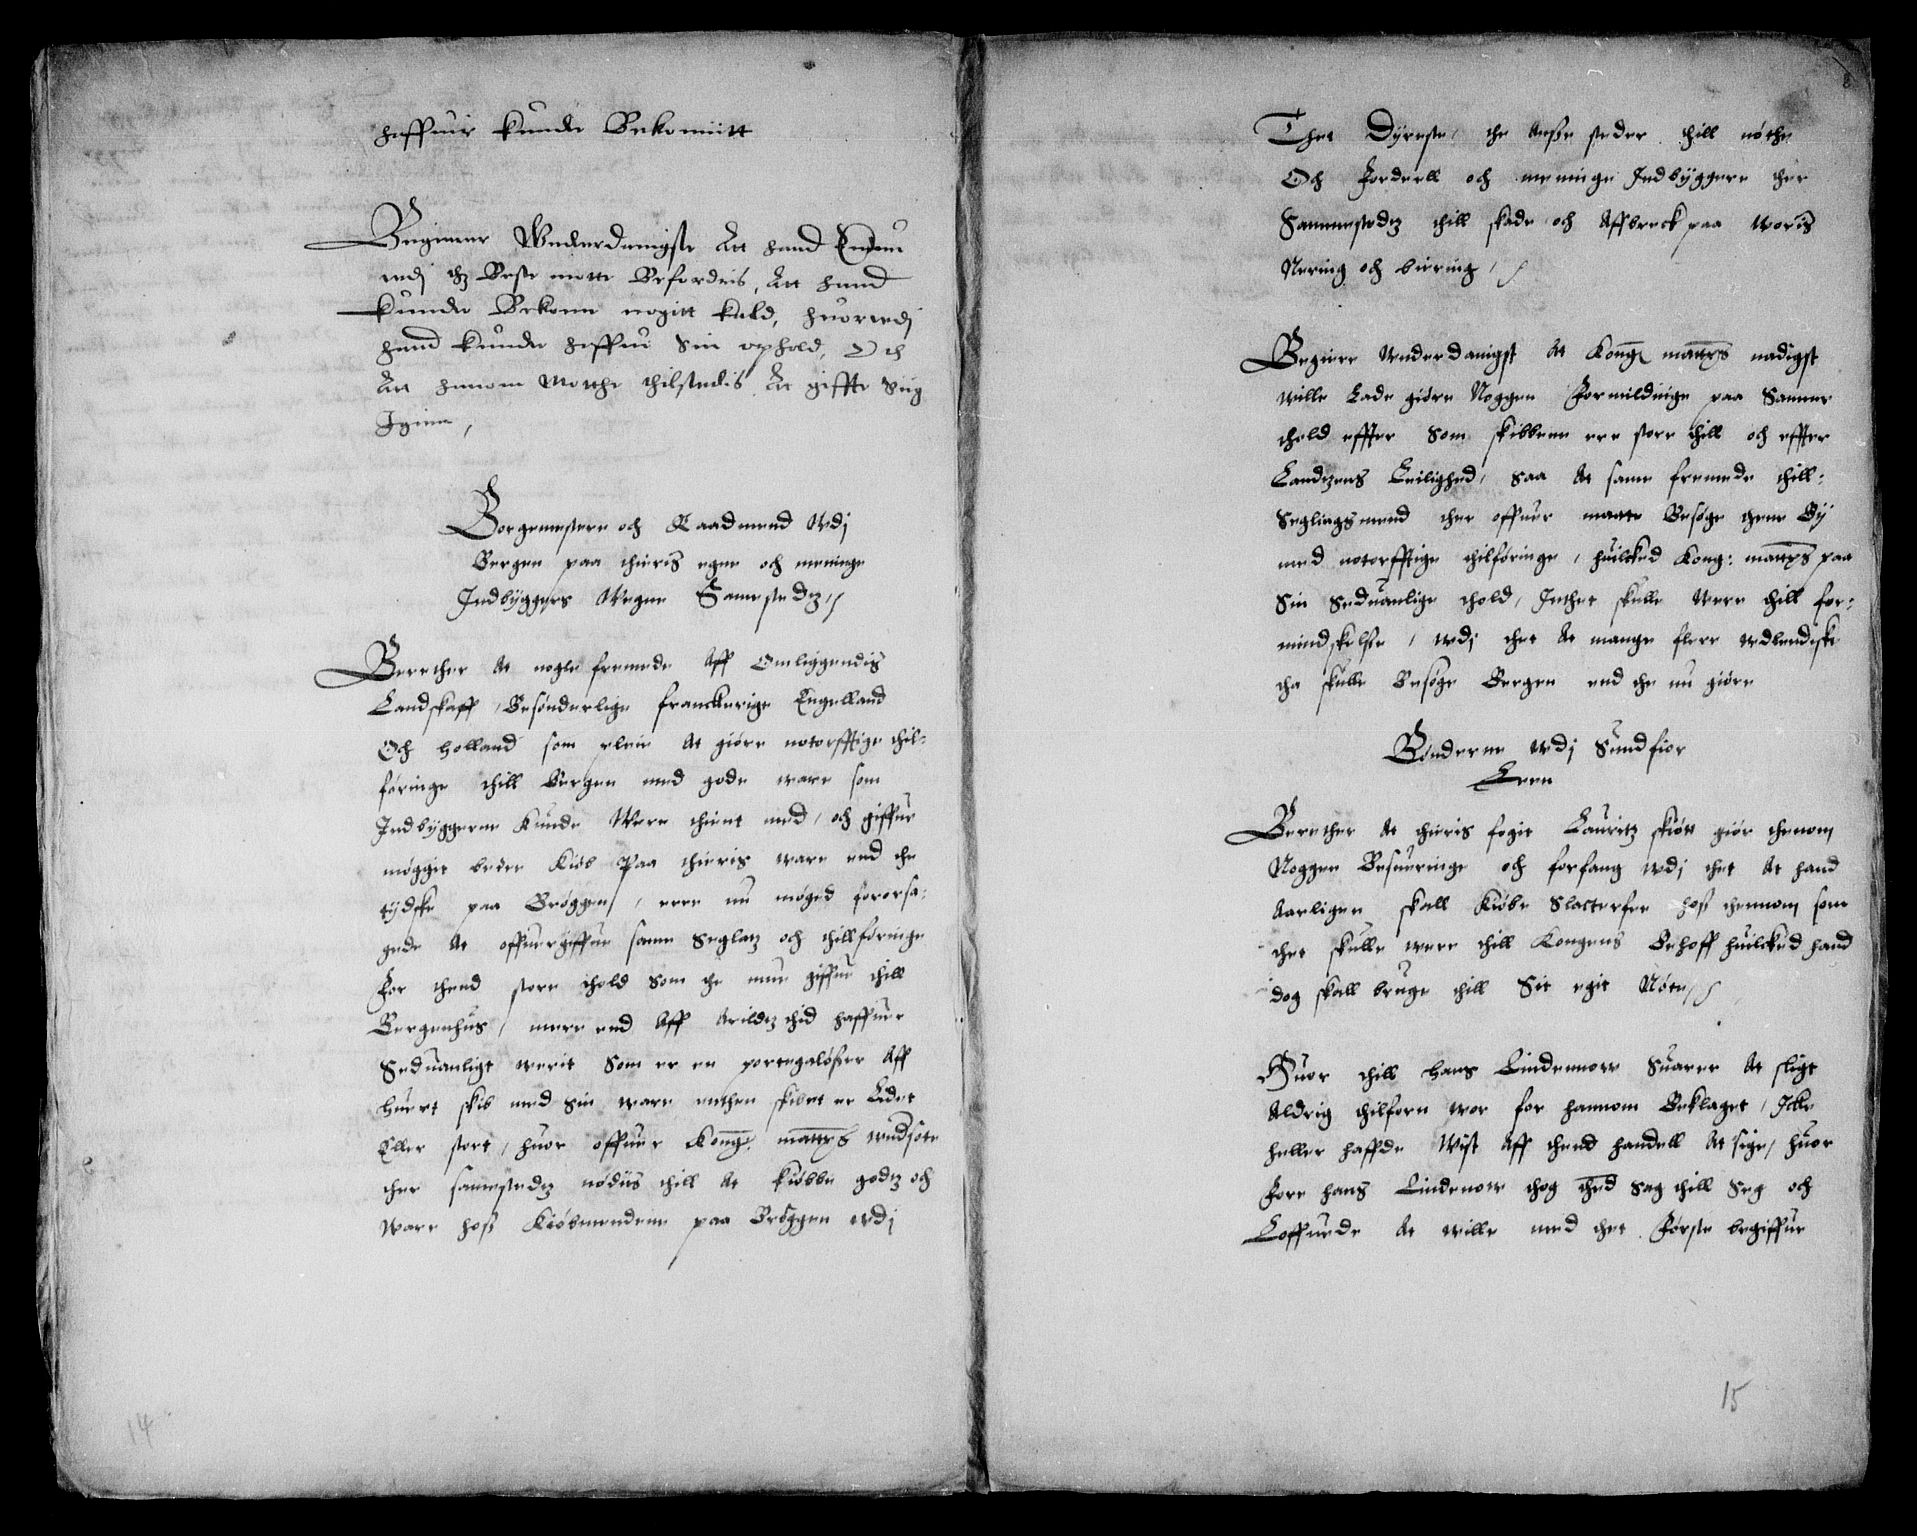 haffuir kunde Bekomitt
Begierer Wnderdanigste Att hand Endnu
wdj thz Beste motte Befordris, Att hand
kunde Bekome nogitt kald, huorwdj
hand kunde haffue Sin ophold, Och
Att hanom Motthe thilstedis At giffte Sig
Igien,
Borgemestere och Raadmend Wdj
Bergen paa thieris egne och meninge
Indbÿggers Wegne Samestedz
Berether At nogle fremede Aff Omliggendis
Landskaff, Besønderlige franckerige Engelland
Och Holland som pleie At giøre notorfftige thil=
føringe thill Bergen med gode ware som
Indbÿggerne Kunde Were thient med, och giffue
møggit bedre Kiøb Paa thieris ware end the
tÿdske paa Brøggen, ere nu møged fororsa=
gede At offuergiffue same Seglatz och thillføringe
For thend store thold Som the mue giffue thill
Bergenhus, mere end Aff Arildtz thid haffuer
Seduanligt werit Som er en portegaløser Aff
huert skib med Sin ware enthen skibet er Lidet
Eller stort, huor offuer Kong. mattes wndsote
ther samestedz nødiis thill At kiøbbe godtz och
ware hoss Kiøbmendene paa Brøggen wdj
Thet Dÿreste, the Anse steder thill nøthe
Och Fordeell och meninge Indbÿggere ther
Sammestedtz thill skade och Affbreck paa woris
Nering och biering,
Begiere Wnderdanigst At Kong mattes nadigst
wille Lade giøre Noggen Formildinge paa Samme
thold effter Som skibbene ere store thill och effter
Landtzens Leilighed, saa At same fremede thill=
Seglingsmend ther offuer maatte Besøge thene Bÿ
med notorfftige thilføringe, huilcked Kong: mattes paa
Sin Seduanlige thold, Inthet skulle Were thill for=
mindskelse, wdj thet At mange flere wdlendiske
tha skulle Besøge Bergen end the nu giøre
Bønderne wdj Sundfior
Leen
Berether At thieris fogit Lauritz skiøtt giør thenom
Noggen Besueringe och forfang wdj thet At hand
Aarligen skall Kiøbe Slacterfee hoss thennom som
thet skulle were thill Kongens Behoff huilcked hand
dog skall bruge thill Sit egit Nøtte
Huor thill Hans Lindennow Suarer At sligt
Aldrig thilforn wor for hannom Beklaget, Icke
heller haffde Wist Aff thend handell At sige, huor
Fore hans Lindenow thog thend Sag thill Seg och
Loffuede At wille med thet Første begiffue
14
15